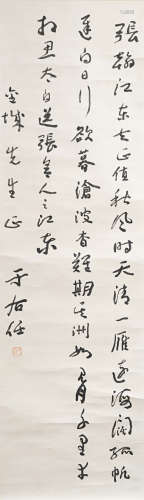 張翰江東去正值秋風時天清一雁遠海闊孤帆
遲白日行欲暮滄波杳難期吳洲如見月千里幸
相思太白送張舍人之江東
先生正
于右任